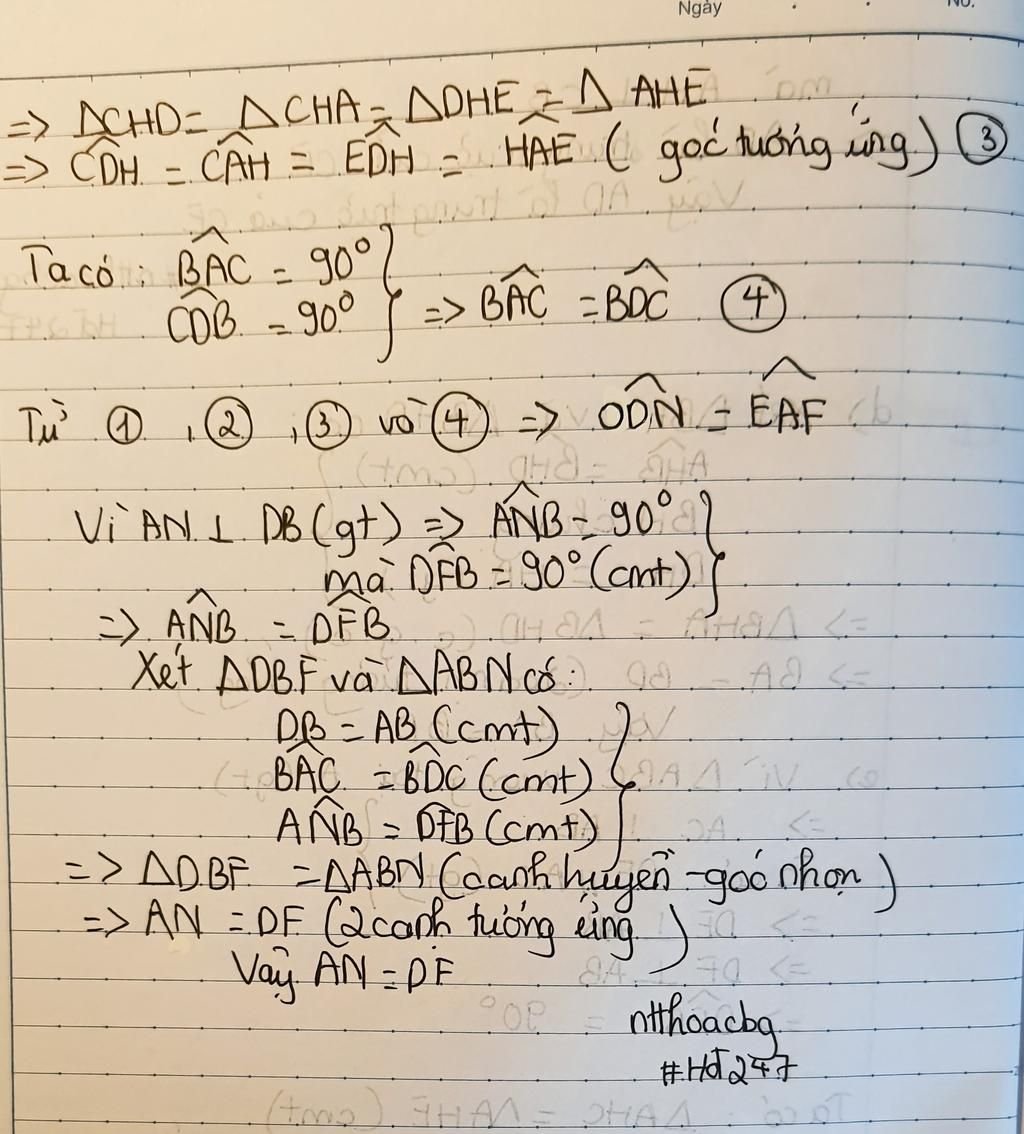 Ngày No.
=> ΔCHD = ΔCHA = ΔDHE = Δ AHE
=> CDH^ = CAH^ = EDH^ = HAE^ ( goć tướng ứng ) ③
Ta có : BAC^ = 90°
CDB^ = 90° => BAC^ = BDC^ ④
Từ ① , ② , ③ và ④ => ODN^ = EAF^
Vì AN ⊥ DB (gt) => ANB^ = 90°
mà DFB^ = 90° (cmt)
=> ANB^ = DFB^
Xét ΔDBF và ΔABN có:
DB = AB (cmt)
BAC^ = BDC^ (cmt)
ANB^ = DFB^ (cmt)
=> ΔDBF = ΔABN (cạnh huyền - góc nhọn )
=> AN = DF (2 cạnh tướng ứng )
Vậy AN = DF
ntthoacbg
#HĐ247